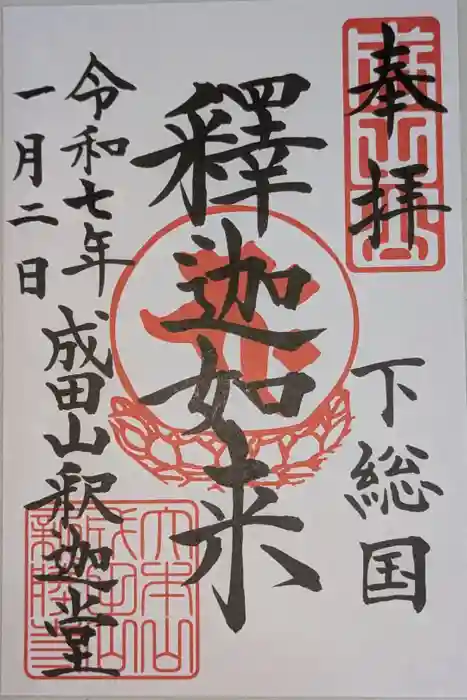 奉拝
下総国
釋迦如来
成田山釈迦堂
令和七年
一月二日